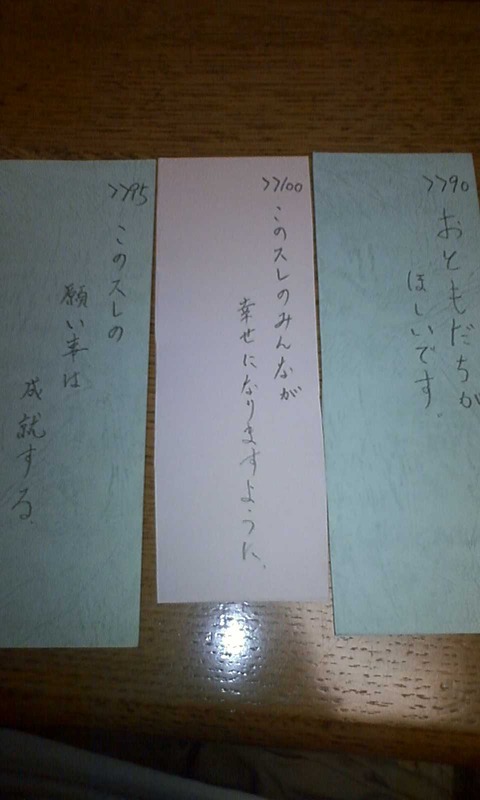 >>90
おともだちが
ほしいです.
>>100
このスレのみんなが
幸せになりますように.
>>95
このスレの
願い事は
成就する.